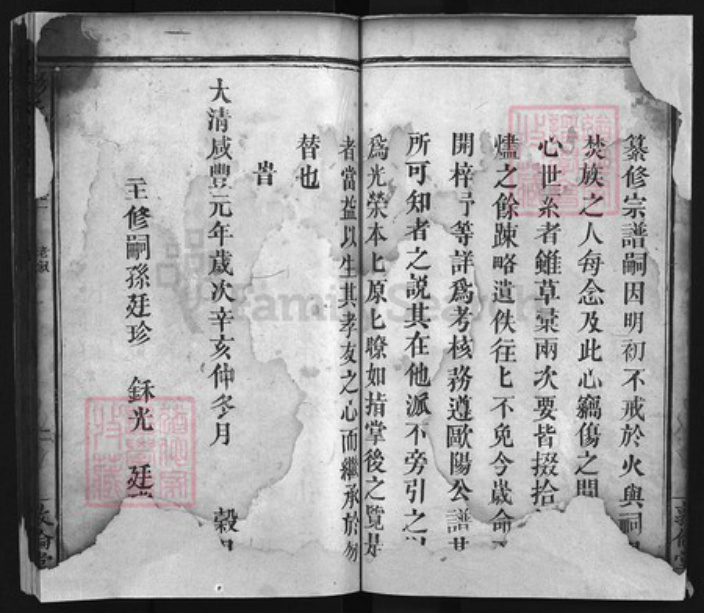 纂修宗譜嗣因明初不戒於火與祠
焚族之人每念及此心竊傷之間
心世系者雖草稾兩次要皆掇拾
燼之餘踈略遺佚往匕不免今歲命
開梓予等詳爲考核務遵歐陽公譜其
所可知者之説其在他派不旁引之以
爲光榮本匕原匕瞭如指掌後之覽是
者當益以生其孝友之心而繼承於勿
替也
旹
大清咸豐元年歲次辛亥仲冬月 穀旦
主修嗣孫廷珍 銾光 廷
敦倫堂
敦倫堂
FamilySearch